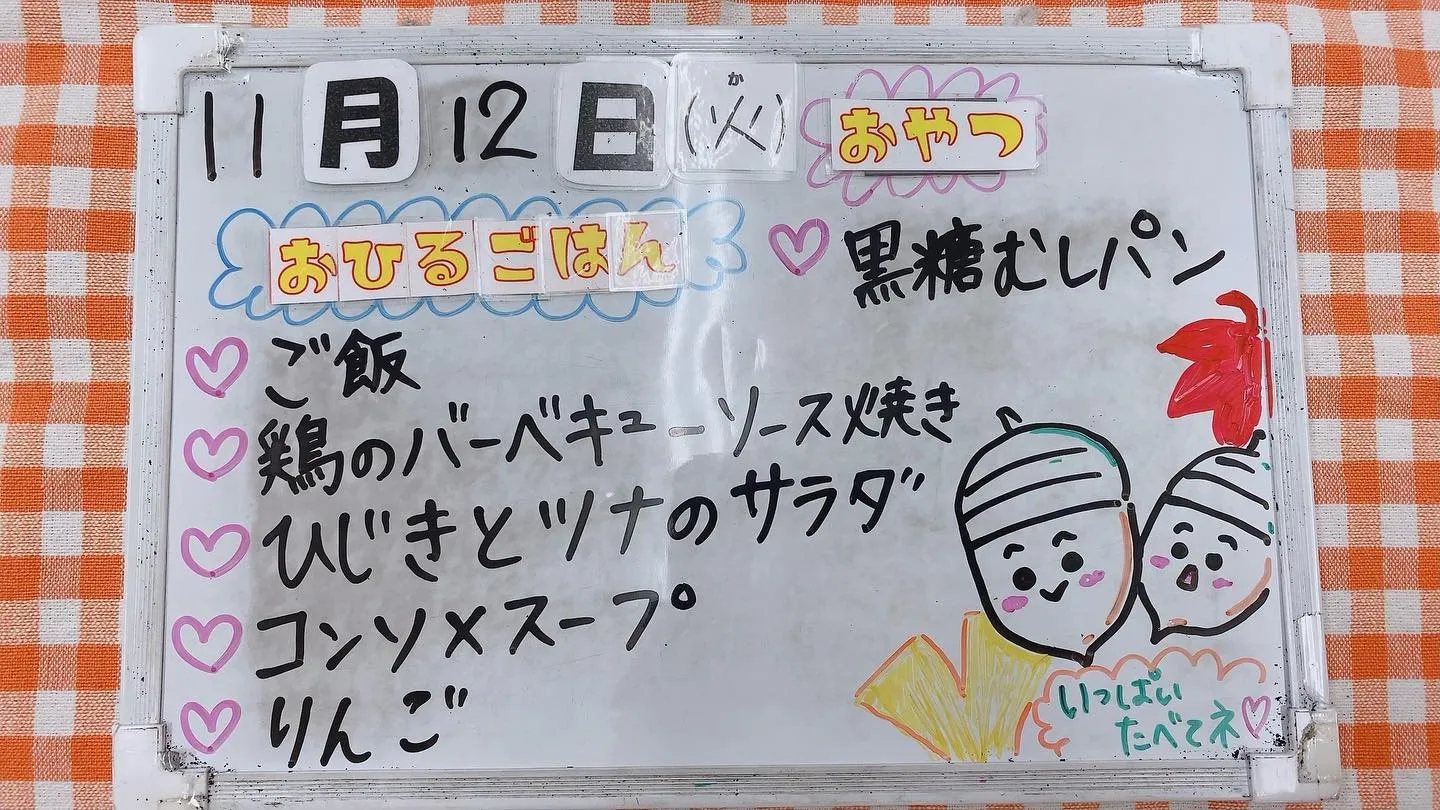 11月12日(火)
か
おやつ
黒糖むしパン
おひるごはん
ご飯
鶏のバーベキューソース焼き
ひじきとツナのサラダ
コンソメスープ
りんご
いっぱい
たべてネ